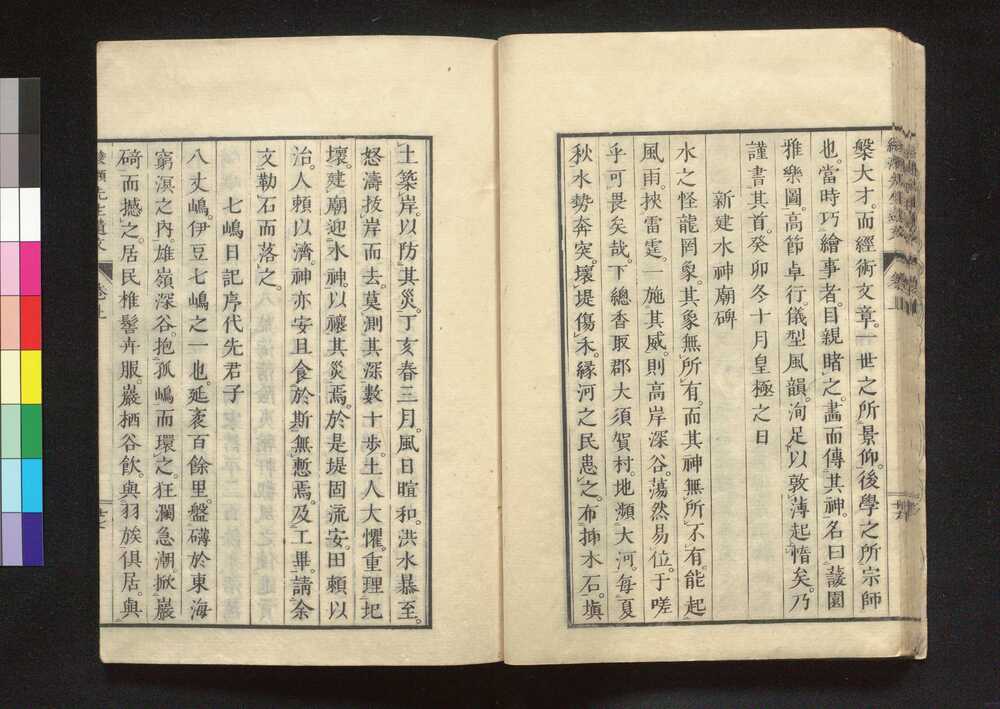 槃大才。而經術文章。一世之所景仰。後學之所宗師
也。當時巧繪事者。目親睹之。畵而傳其神。名曰。蘐園
雅樂圖。高節卓行。儀型風韻。洵足以敦薄起惰矣。乃
謹書其首。癸卯冬十月皇極之日
新建水神廟碑
水之怪龍罔象。其象無所有。而其神無所不有。能起
風雨。挾雷霆。一施其威。則高岸深谷。蕩然易位。于嗟
乎可畏矣哉。下總香取郡大須賀村。地瀕大河。每夏
秋水勢奔突。壞堤傷禾。緣河之民患之。布揷木石。塡
土築岸。以防其災。丁亥春三月。風日暄和。洪水暴至。
怒濤拔岸而去。莫測其深數十步。土人大懼。重理圯
壞。建廟迎水神。以禳其災焉。於是堤固流安。田賴以
治。人賴以濟。神亦安且食於斯。無慙焉。及工畢。請余
文勒石而落之。
七嶋日記序代先君子
八丈嶋。伊豆七嶋之一也。延袤百餘里。盤礴於東海
窮溟之內。雄嶺深谷。抱孤嶋而環之。狂瀾急潮。掀巖
碕而撼之。居民椎髻卉服。巖栖谷飲。與羽族俱居。與
先生遺文 卷上